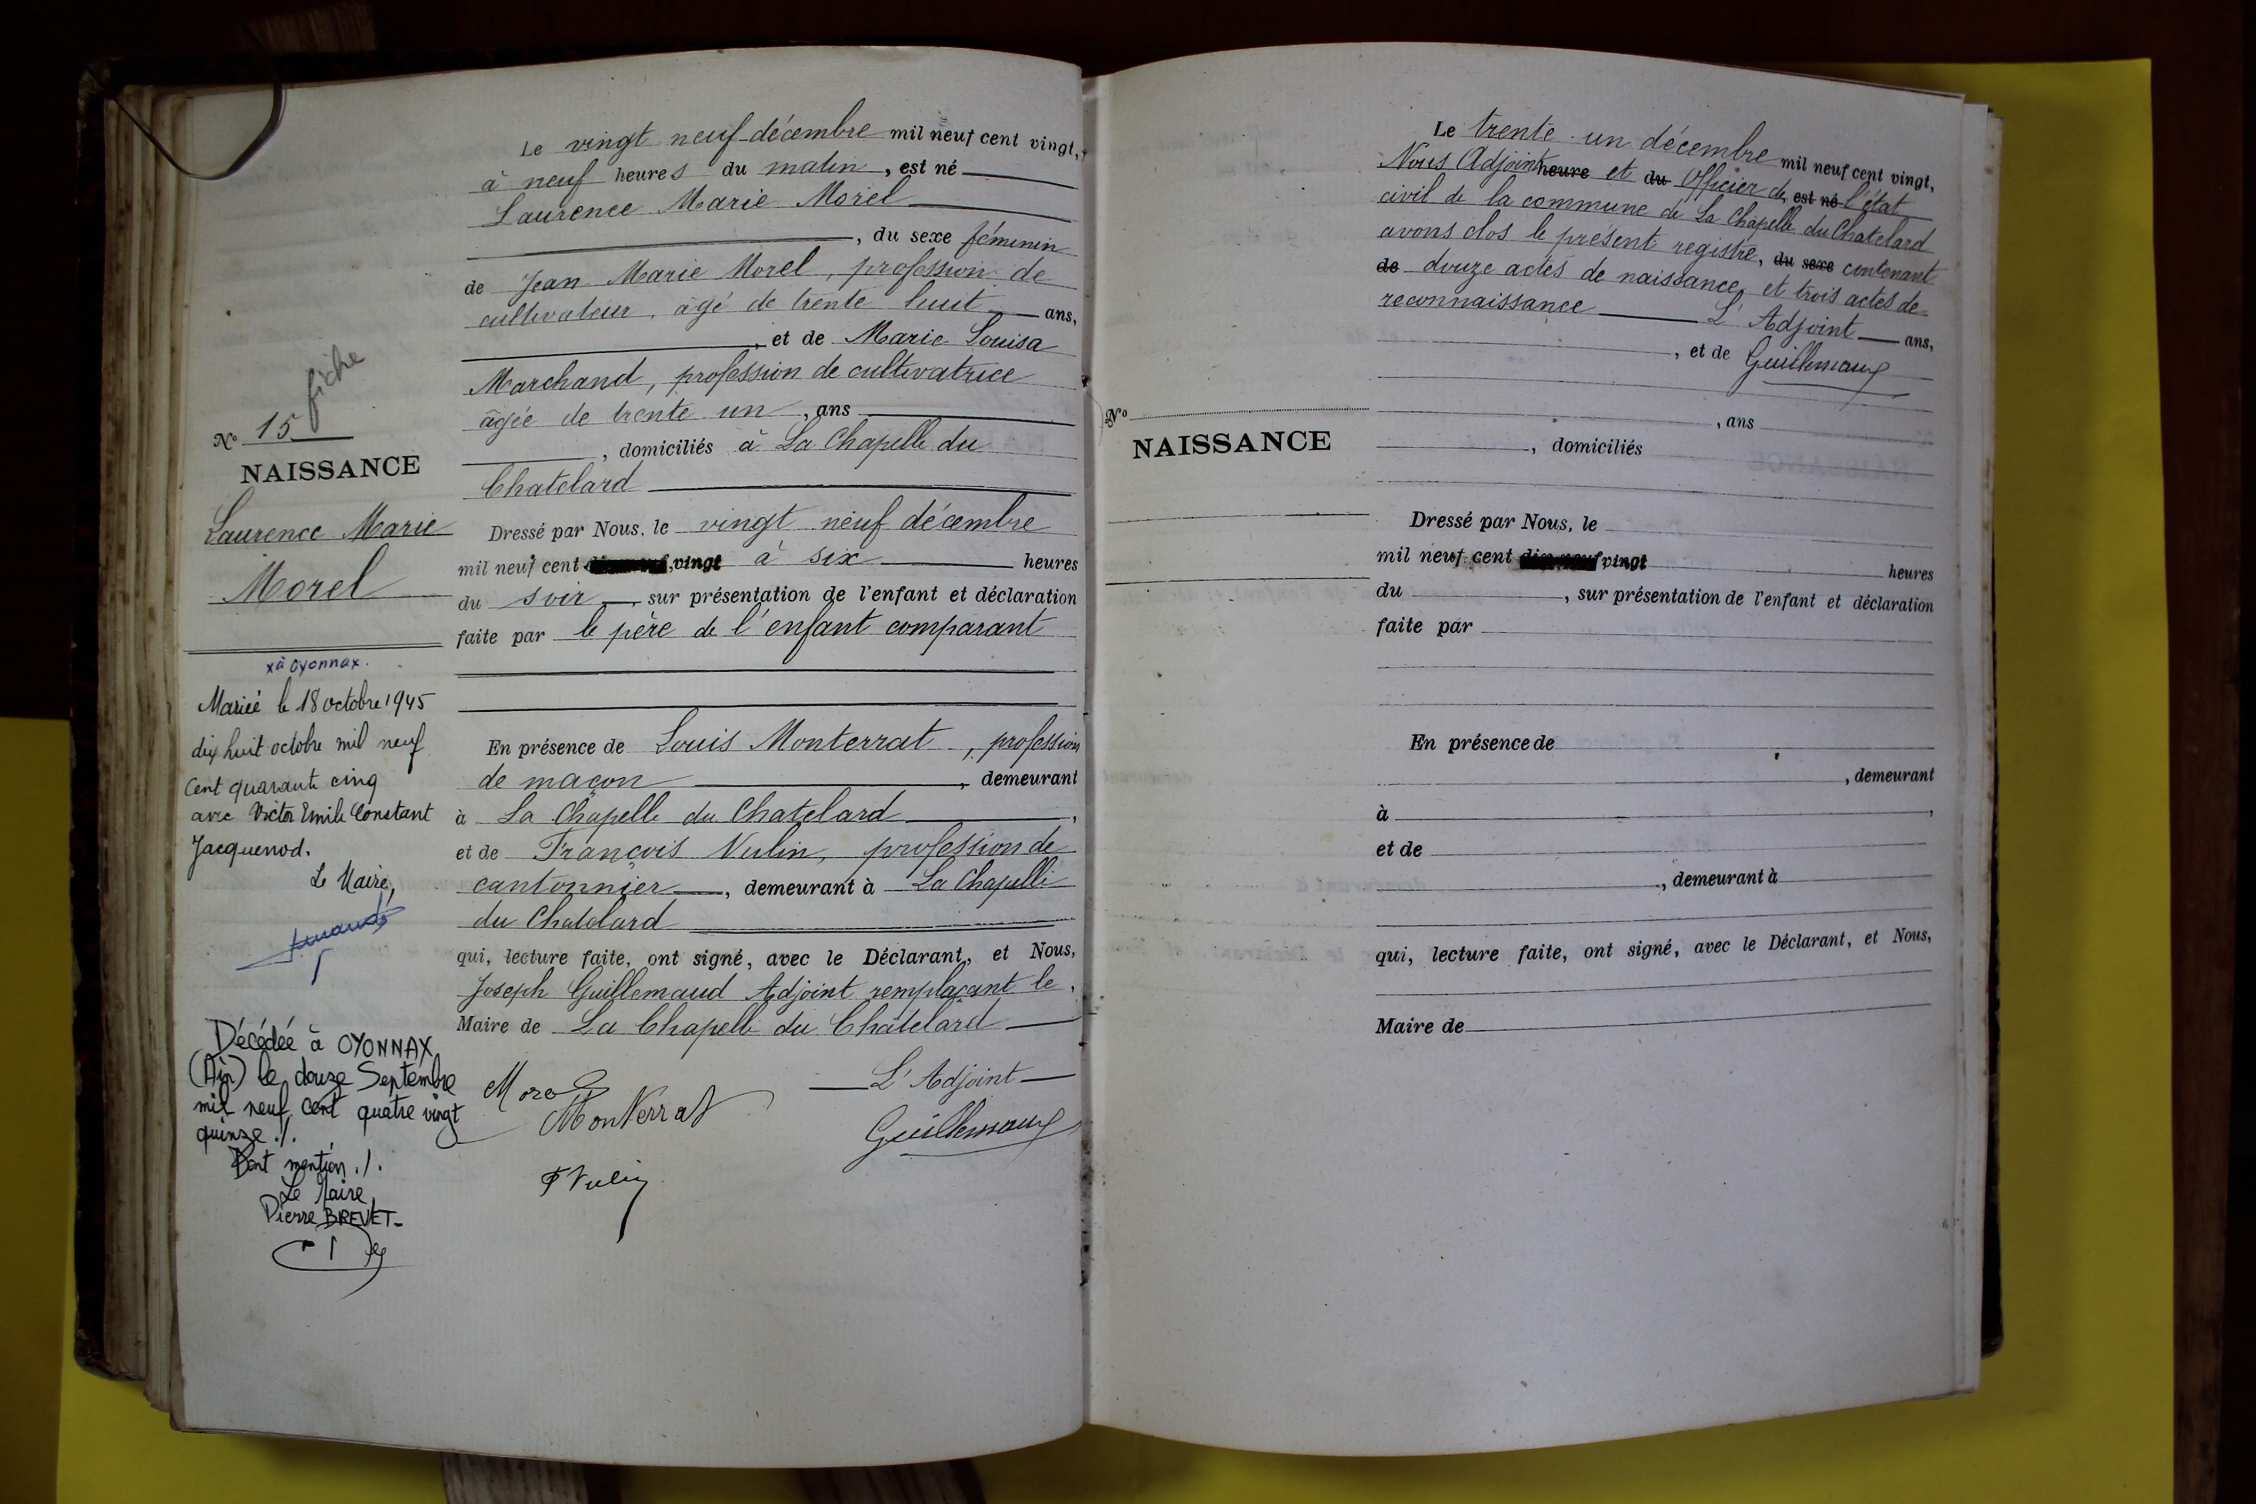 fiche
N° 15
NAISSANCE
Laurence Marie
Morel
x à Oyonnax.
Mariée le 18 octobre 1945
dix huit octobre mil neuf
cent quarante cinq
avec Victor Emile Constant
Jacquenod.
Le Maire,
Décédée à OYONNAX
(Ain) le douze Septembre
mil neuf cent quatre vingt
quinze ./.
Dont mention ./.
Le Maire,
Pierre BREVET_
Le vingt neuf décembre mil neuf cent vingt,
à neuf heures du matin, est né
Laurence Marie Morel
, du sexe féminin
de Jean Marie Morel, profession de
cultivateur, âgé de trente huit ans,
, et de Marie Louisa
Marchand, profession de cultivatrice
âgée de trente un, ans
, domiciliés à La Chapelle du
Chatelard
Dressé par Nous, le vingt neuf décembre
mil neuf cent vingt à six heures
du soir, sur présentation de l'enfant et déclaration
faite par le père de l'enfant comparant
En présence de Louis Monterrat, profession
de maçon, demeurant
à La Chapelle du Chatelard,
et de François Vulin, profession de
cantonnier, demeurant à La Chapelle
du Chatelard
qui, lecture faite, ont signé, avec le Déclarant, et Nous,
Joseph Guillemaud Adjoint remplaçant le
Maire de La Chapelle du Châtelard
Morel
L'Adjoint
Monterrat
Guillemaud
F Vulin
Le trente un décembre mil neuf cent vingt,
Nous Adjoint heure et du Officier de, est né l'état
civil de la commune de La Chapelle du Chatelard
avons clos le présent registre, du sexe contenant
de douze actes de naissance et trois actes de
reconnaissance L'Adjoint ans,
, et de Guillemaud
N°
NAISSANCE
, ans
, domiciliés
Dressé par Nous, le
mil neuf cent vingt heures
du , sur présentation de l'enfant et déclaration
faite par
En présence de
, demeurant
à ,
et de
, demeurant à
qui, lecture faite, ont signé, avec le Déclarant, et Nous,
Maire de